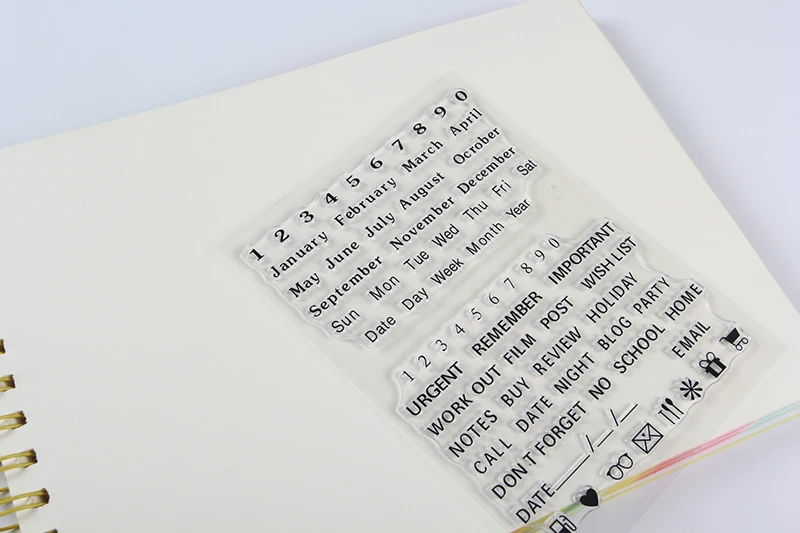 1 2 3 4 5 6 7 8 9 0
January February March April
May June July August Ocrober
September November December
Sun Mon Tue Wed Thu Fri Sat
Date Day Week Month Year
1 2 3 4 5 6 7 8 9 0
URGENT REMEMBER IMPORTANT
WORK OUT FILM POST WISH LIST
NOTES BUY REVIEW HOLIDAY
CALL DATE NIGHT BLOG PARTY
DON T FORGET NO SCHOOL HOME
DATE__/__/__ EMAIL